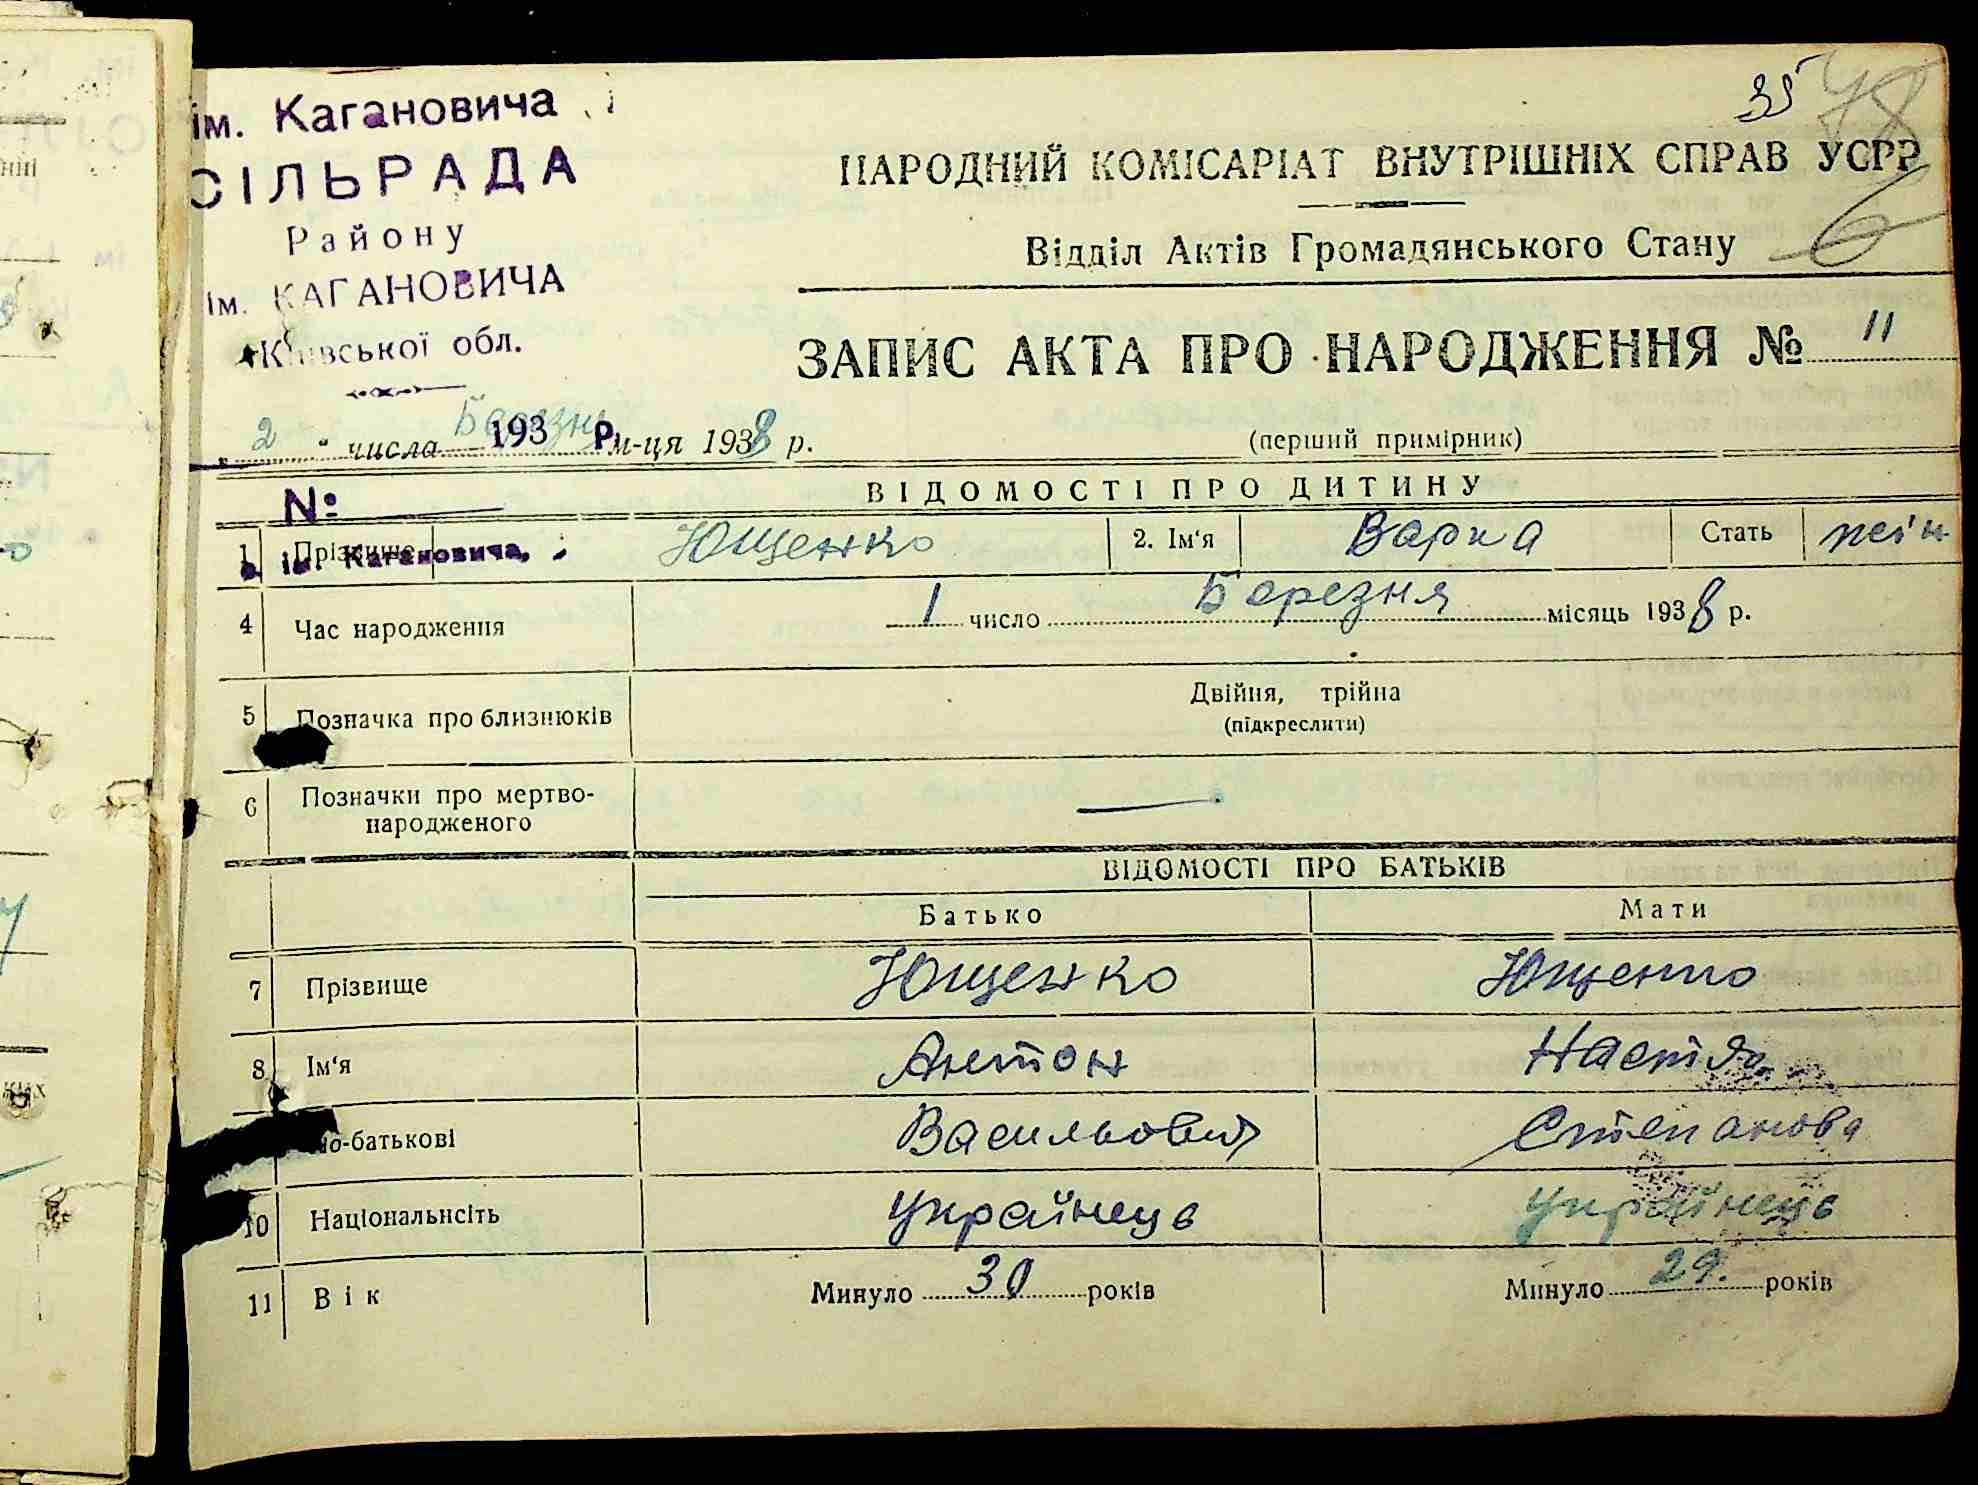 ім. Кагановича
СІЛЬРАДА
Району
ім. КАГАНОВИЧА
Київської обл.
35 78
6
НАРОДНИЙ КОМІСАРІАТ ВНУТРІШНІХ СПРАВ УСРР
Відділ Актів Громадянського Стану
ЗАПИС АКТА ПРО НАРОДЖЕННЯ № 11
(перший примірник)
„ 2 " числа Березня м-ця 1938 р.
193 р.
№
с. ім. Кагановича,
ВІДОМОСТІ ПРО ДИТИНУ
1 Прізвище Ющенко 2. Ім'я Варка Стать жін
4 Час народження 1 число Березня місяць 1938 р.
5 Позначка про близнюків Двійня, трійна
(підкреслити)
6 Позначки про мертво-
народженого —
ВІДОМОСТІ ПРО БАТЬКІВ
Батько Мати
7 Прізвище Ющенко Ющенко
8 Ім'я Антон Настя
по-батькові Васильович Степанова
10 Національнсіть Українець Українець
11 Вік Минуло 30 років Минуло 29. років